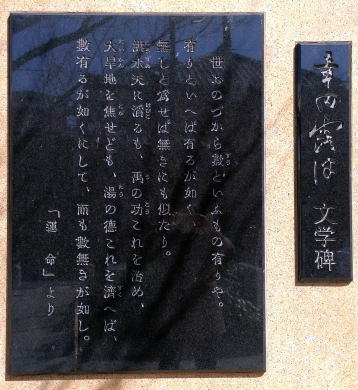 幸田露伴 文学碑
世おのづから數といふもの有りや。
有りといへば有るが如く、
無しと爲せば無きにも似たり。
洪水天に滔るも、禹の功これを治め、
大旱地を焦せども、湯の德これを濟へば、
數有るが如くにして、而も數無きが如し。
「運命」より